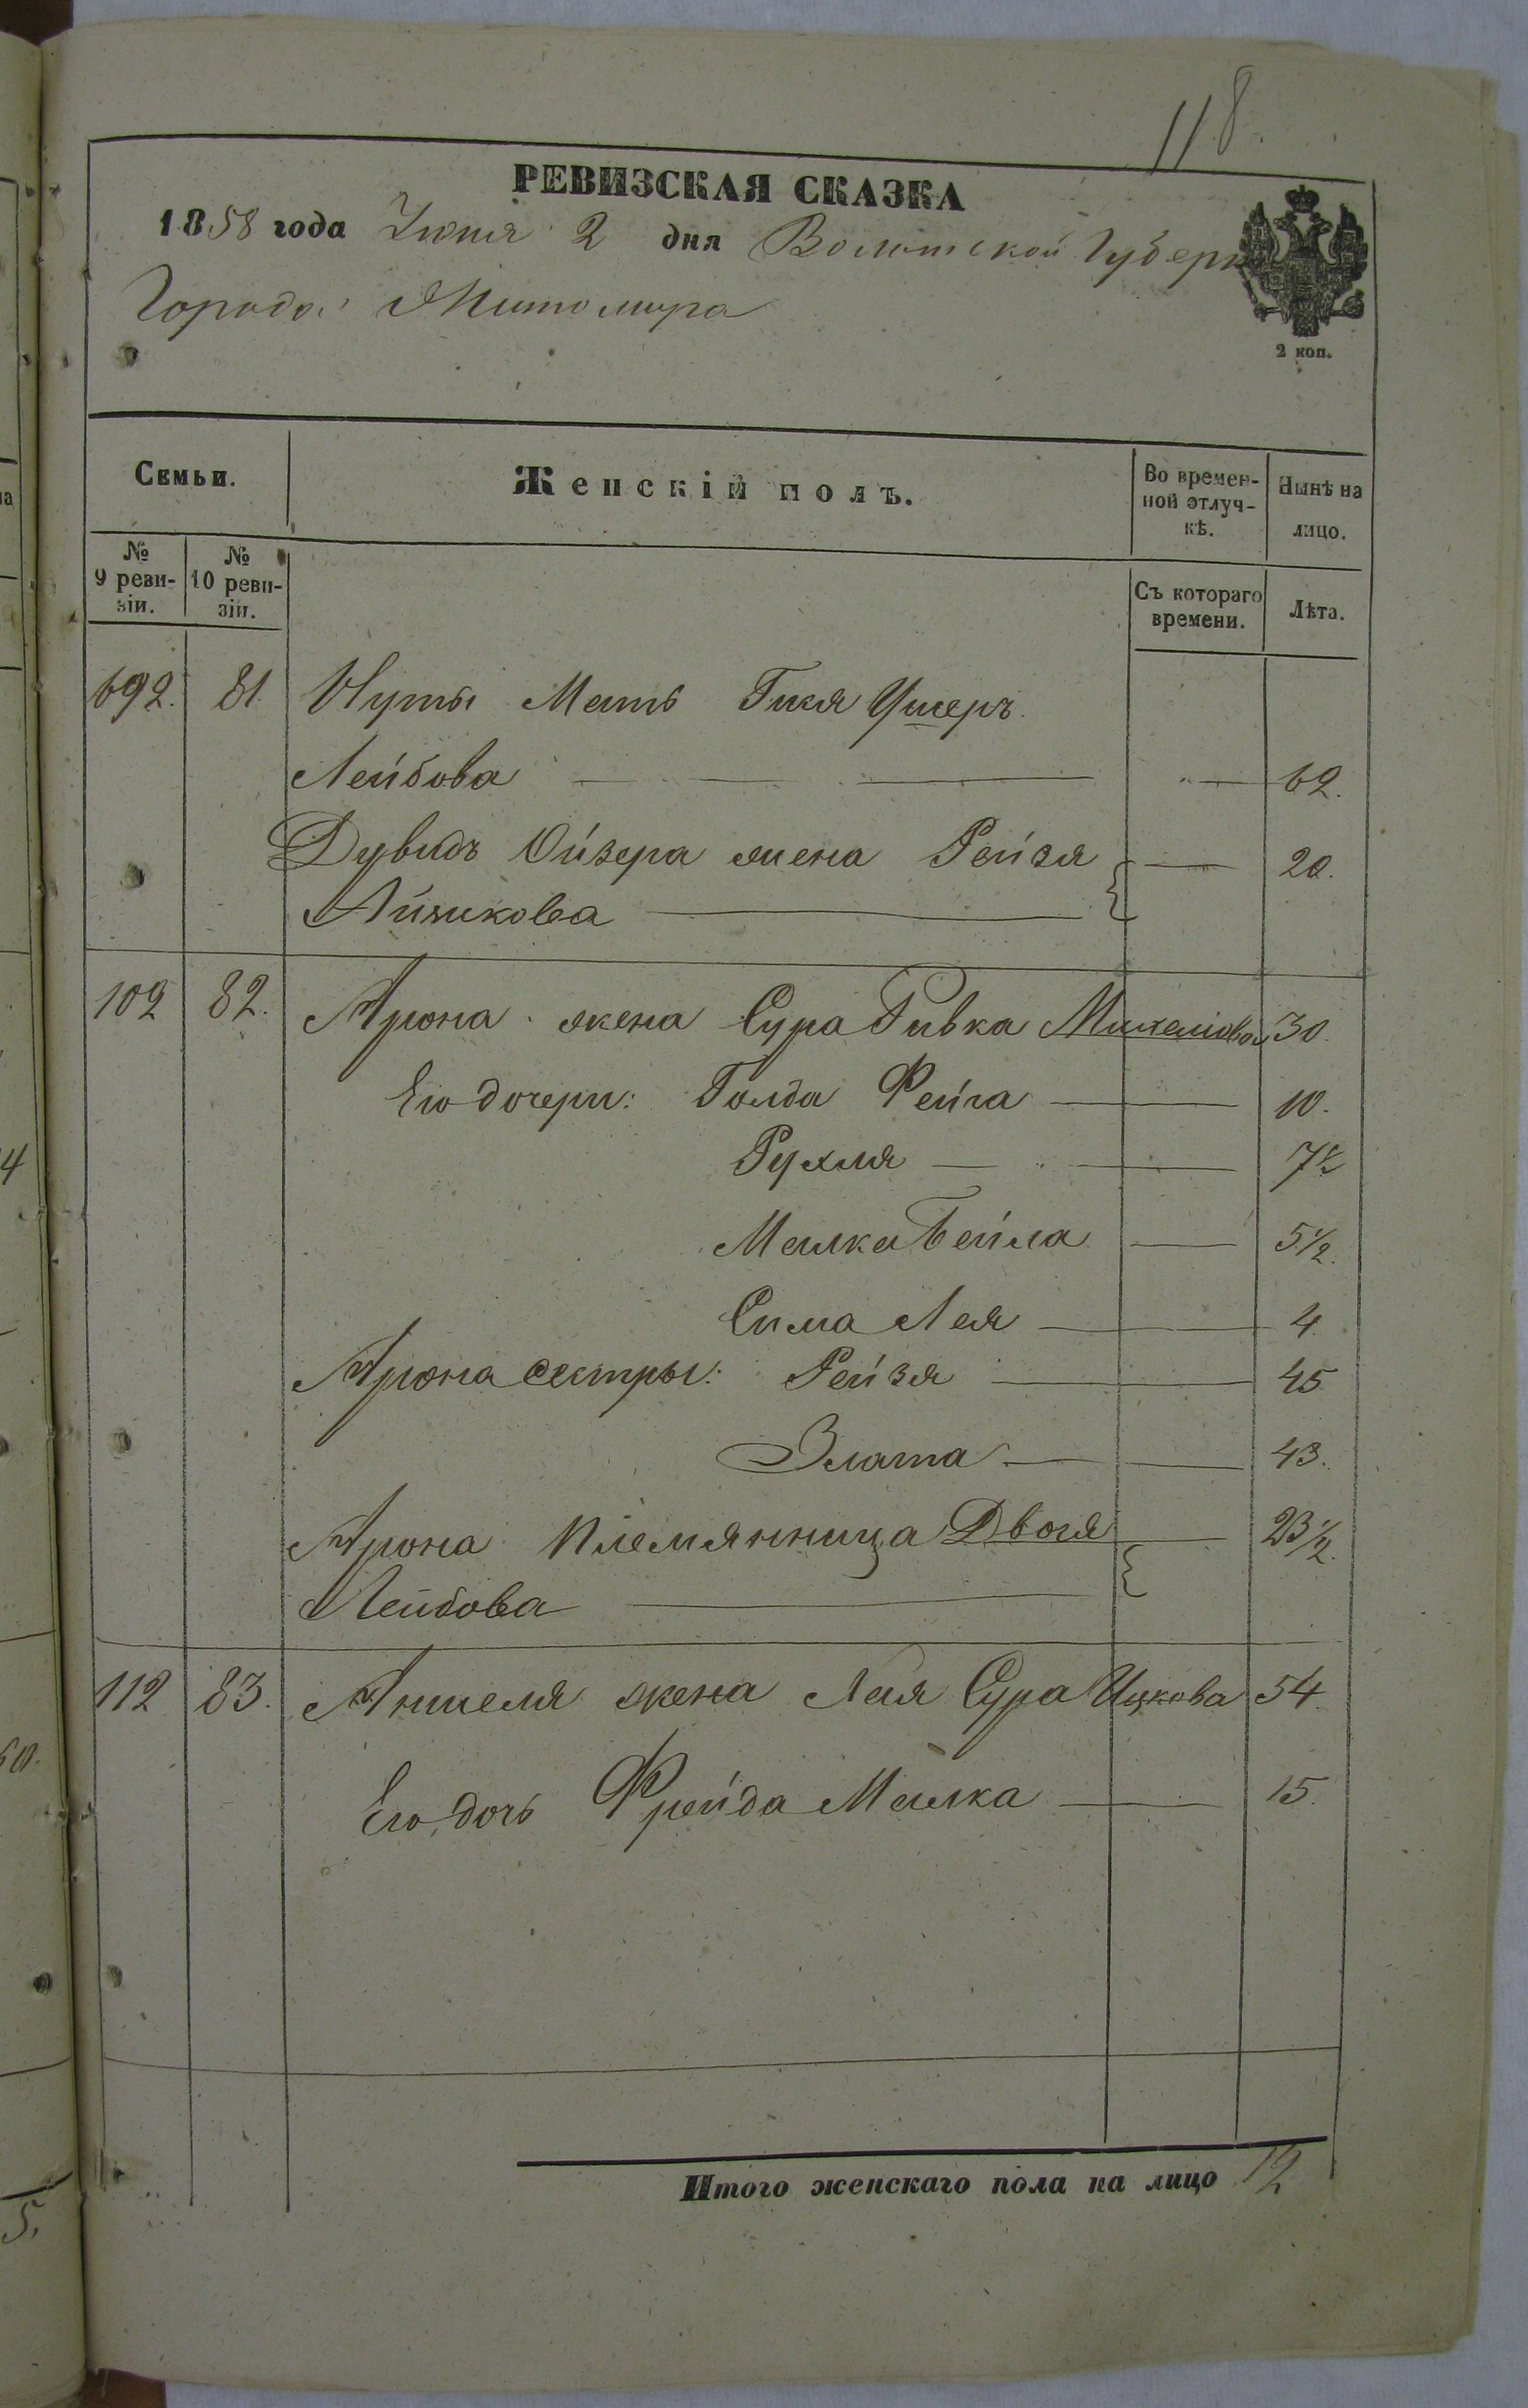 118.
РЕВИЗСКАЯ СКАЗКА
1858 года Июня 2 дня Волынской Губерн
Города Житомира
2 коп.
Семьи.
Женскій полъ.
Во времен-
ной отлуч-
кѣ.
Нынѣ на
лицо.
№
9 реви-
зіи.
№
10 реви-
зіи.
Съ котораго
времени.
Лѣта.
692. 81. Нуты Мать Гитя Ушеръ
Лейбова 62.
Дувидъ Ойзера жена Рейзя 20.
Айзикова
109 82. Арона жена Сура Ривка 30.
Его дочери: Голда Фейга 10.
Рухля 7½
Малка Бейла 5½.
Сима Лея 4
Арона сестры: Рейзя 45
Злата 43.
Арона племянница Двося 23½.
Лейбова
112 83. Аншеля жена Лея Сура Ицкова 54.
Его дочь Фрейда Малка 15.
Итого женскаго пола на лицо 12
4
60.
5.